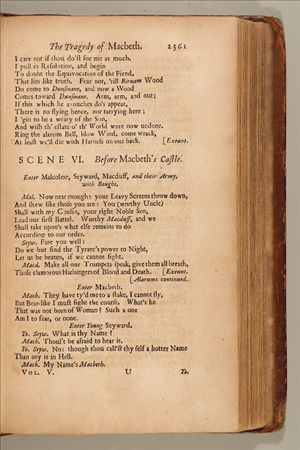 The Tragedy of Macbeth. 2361
I care not if thou do'st for me as much.
I pull in Resolution, and begin
To doubt the Equivocation of the Fiend,
That lies like truth. Fear not, 'till Birnam Wood
Do come to Dunsinane, and now a Wood
Comes toward Dunsinane. Arm, arm, and out;
If this which he avouches do's appear,
There is no flying hence, nor tarrying here;
I 'gin to be a weary of the Sun,
And wish th' estate o' th' World were now undone.
Ring the alarum Bell, blow Wind, come wrack,
At least we'll die with Harness on our back. [Exeunt.
SCENE VI. Before Macbeth's Castle.
Enter Malcolme, Seyward, Macduff, and their Army,
with Boughs.
Mal. Now near enough: your Leavy Screens throw down,
And shew like those you are: You (worthy Uncle)
Shall with my Cousin, your right Noble Son,
Lead our first Battel. Worthy Macduff, and we
Shall take upon's what else remains to do
According to our order.
Seyw. Fare you well:
Do we but find the Tyrant's power to Night,
Let us be beaten, if we cannot fight.
Macd. Make all our Trumpets speak, give them all breath,
Those clamorous Harbingers of Blood and Death. [Exeunt.
[Alarums continued.
Enter Macbeth.
Macb. They have ty'd me to a stake, I cannot fly,
But Bear-like I must fight the course. What's he
That was not born of Woman? Such a one
Am I to fear, or none.
Enter Young Seyward.
Yo. Seyw. What is thy Name?
Macb. Thou'lt be afraid to hear it.
Yo. Seyw. No: though thou call'st thy self a hotter Name
Than any is in Hell.
Macb. My Name's Macbeth.
VOL. V. U Yo.